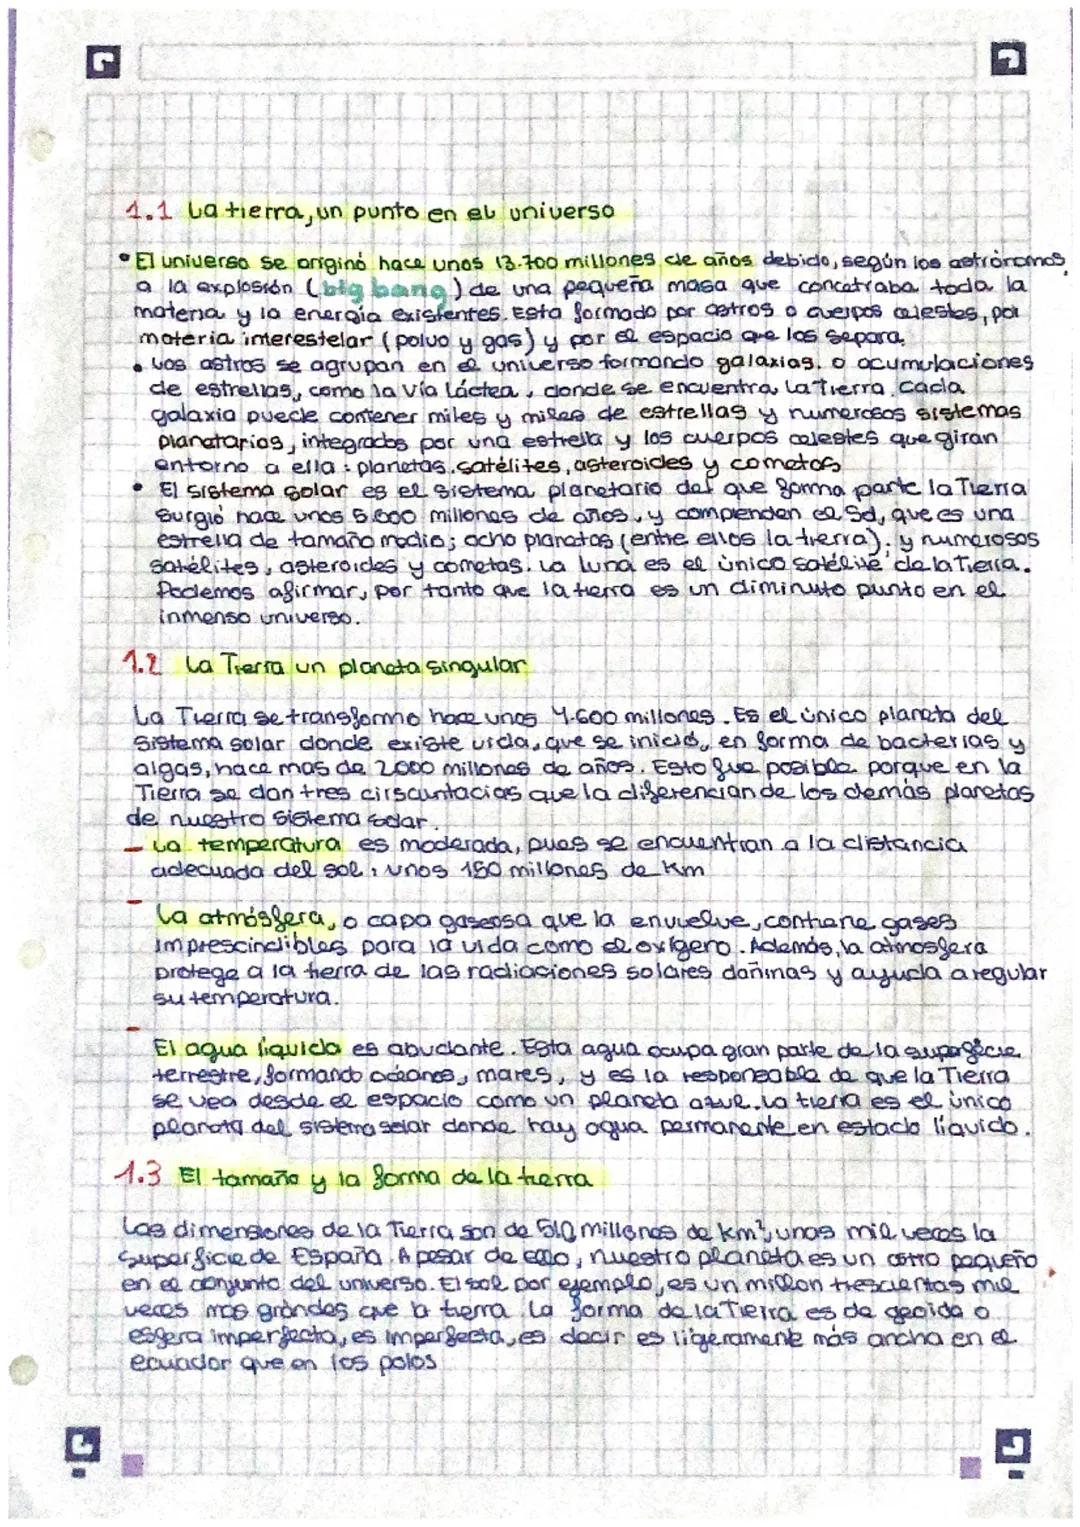 1.1 La tierra, un punto en el universo
• El universo se originó hace unos 13.700 millones de años debido, según los astrónomos,
a la explosión (big bang) de una pequeña masa que concetraba toda la
materia y la energía existentes. Esta formado por astros o cuerpos celestes, por
materia interestelar (polvo y gas) y por el espacio que los separa.
• Los astros se agrupan en el universo formando galaxias. o acumulaciones
de estrellas, como la Vía Láctea, donde se encuentra La Tierra. Cada
galaxia puede contener miles y miles de estrellas y numerosos sistemas
planetarios, integrados por una estrella y los cuerpos celestes que giran
entorno a ella: planetas. satélites, asteroides y cometas
• El sistema solar es el sistema planetario del que forma parte la Tierra
Surgió hace unos 5.000 millones de años, y comprenden el Sol, que es una
estrella de tamaño medio; ocho planetas (entre ellos la tierra); y numerosos
satélites, asteroides y cometas. La luna es el único satélite de la Tierra.
Podemos afirmar, por tanto que la tierra es un diminuto punto en el
inmenso universo.
1.2 La Tierra un planeta singular
La Tierra se transformo hace unos 4.600 millones. Es el único planeta del
sistema solar donde existe vida, que se inició, en forma de bacterias y
algas, hace mas de 2000 millones de años. Esto fue posible porque en la
Tierra se dan tres cirscuntacias que la diferencian de los demás planetas
de nuestro sistema solar.
- La temperatura es moderada, pues se encuentran a la distancia
adecuada del sol: unos 150 millones de Km
- La atmósfera, o capa gaseosa que la envuelve, contiene gases
imprescindibles para la vida como el oxígero. Además, la atmosfera
protege a la tierra de las radiaciones solares dañinas y ayuda a regular
su temperatura.
- El agua líquida es abudante. Esta agua ocupa gran parte de la superficie
terrestre, formando océanos, mares, y es la responsable de que la Tierra
se vea desde el espacio como un planeta azul. La tierra es el único
planeta del sistema solar donde hay agua permanente en estado líquido.
1.3 El tamaño y la forma de la tierra
Las dimensiones de la Tierra son de 510 millones de km², unas mil veces la
superficie de España. A pesar de ello, nuestro planeta es un astro pequeño
en el conjunto del universo. El sol por ejemplo, es un millon trescientas mil
veces mas grandes que la tierra. La forma de la Tierra es de geoide o
esfera imperfecta, es imperfecta, es decir es ligeramente más ancha en el
ecuador que en los polos